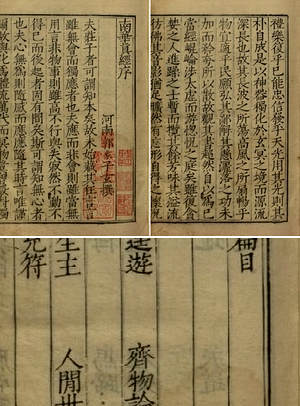 南華真經序
河南郭象子玄撰
夫莊子者可謂知本矣故未始藏其狂言言
雖無會而獨應者也夫應而非會則雖當無
用言非物事則雖高不行與夫寂然不動不
得已而後起者固有間矣斯可謂知無心者
也夫心無為則隨感而應應隨其時言唯謹
爾故與化為體流萬代而冥物
禮樂復乎已能忠信發乎天光用其光則其
朴自成是以神器獨化於玄冥之境而源流
深長也故其長波之所蕩高風之所扇暢乎
物宜適乎民願弘其鄙解其懸灑落之功未
加而矜夸所以散故觀其書超然自以為已
當經崑崙涉太虛而游惚怳之庭矣雖復貪
婪之人進躁之士暫而攬其餘芳味其溢流
彷彿其音影猶足曠然有忘形自得之懷
篇目
逍遊 齊物論
生主 人閒世
充符